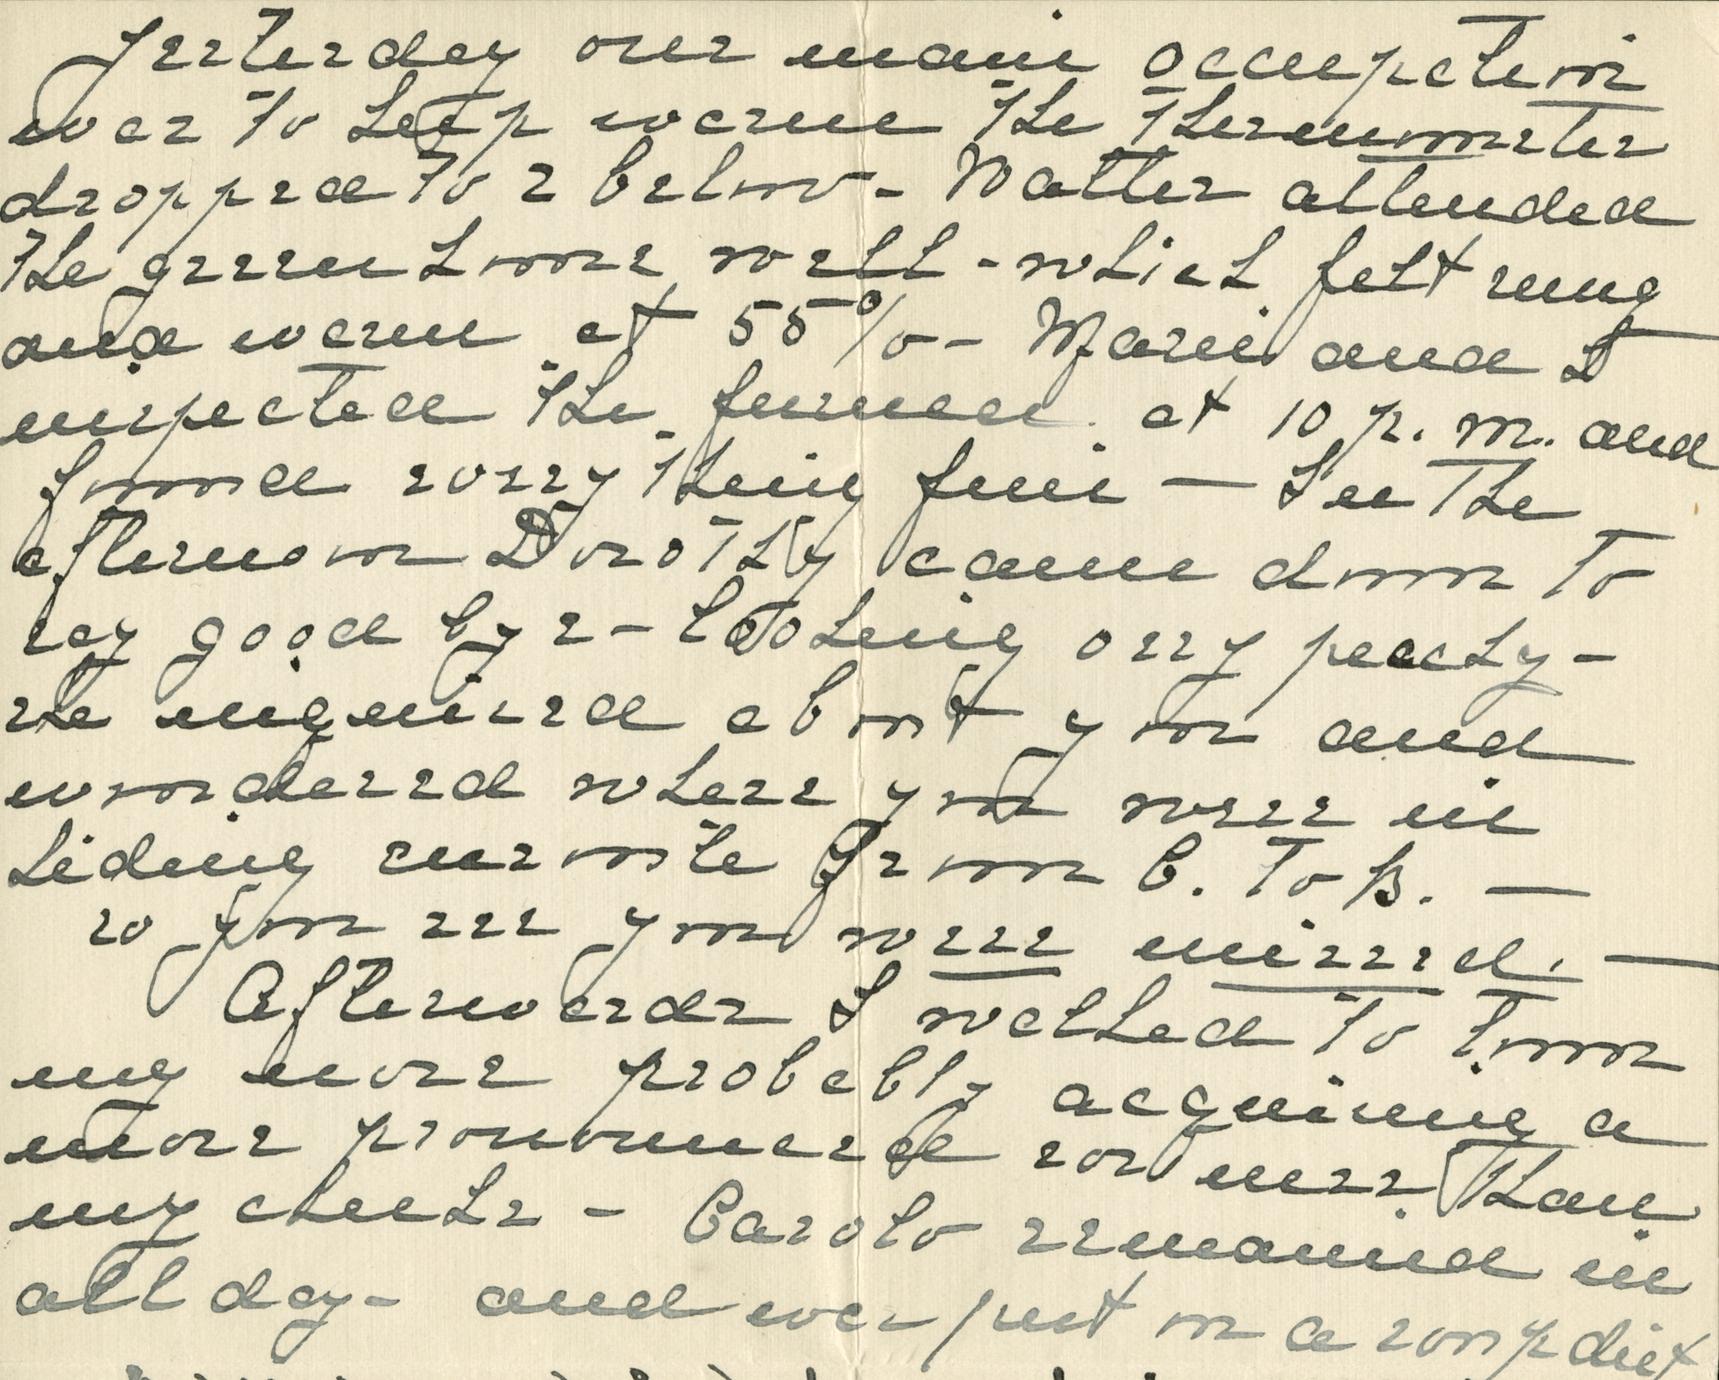 Yesterday our main occupation
was to keep warm the thermometer
dropped to 2 below - Walter attended
the greenhouse well - which felt snug
and warm at 55% - Marie and I
inspected the furnace at 10 p. m. and
found everything fine — In the
afternoon Dorothy came down to
say good bye - looking very peaky -
she inquired about you and
wondered where you were in
hiding enroute from C. to B. —
so you see you were missed. —
Afterwards I walked to town
my nose probably acquiring a
more pronounced rosiness than
my cheeks - Carolo remained in
all day - and was put on a soup diet